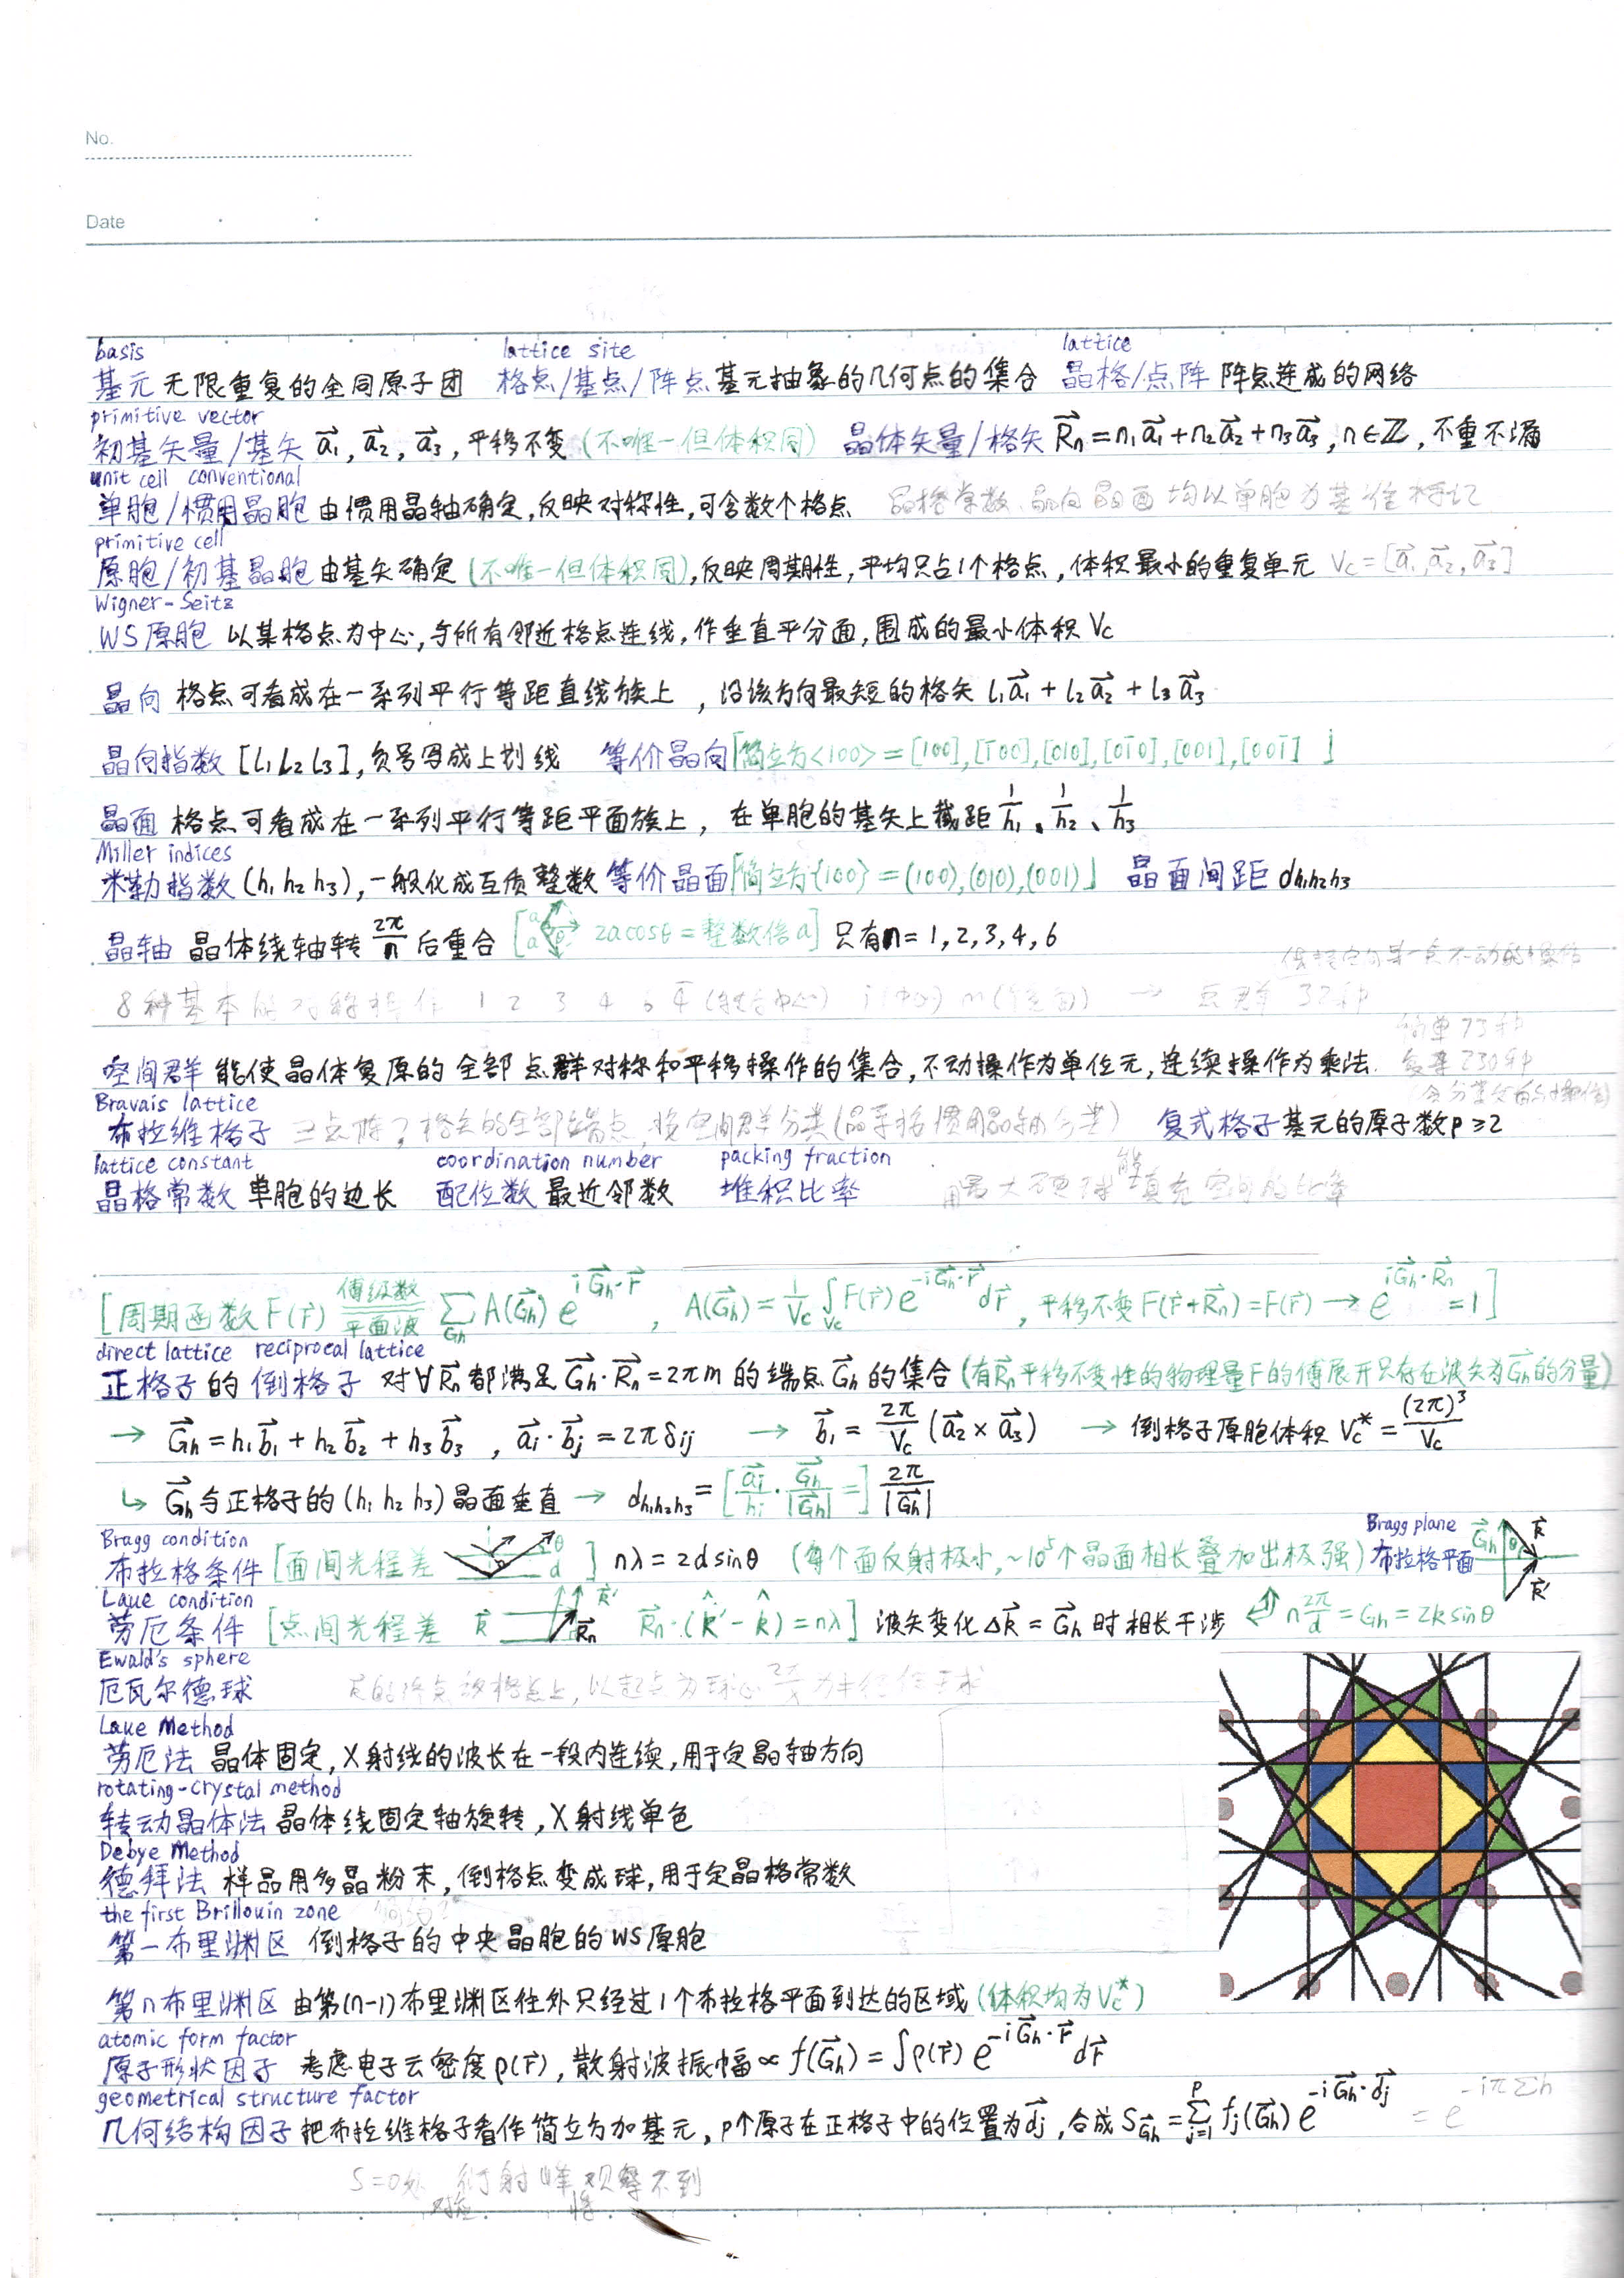 No.
Date
basis lattice site lattice
基元 无限重复的全同原子团 格点/基点/阵点 基元抽象的几何点的集合 晶格/点阵 阵点连成的网络
primitive vector
初基矢量/基矢 a⃗₁, a⃗₂, a⃗₃, 平移不变 (不唯一但体积同) 晶体矢量/格矢 R⃗n = n₁a⃗₁ + n₂a⃗₂ + n₃a⃗₃, n∈ℤ, 不重不漏
unit cell conventional
单胞/惯用晶胞 由惯用晶轴确定, 反映对称性, 可含数个格点 晶格常数、晶向晶面均以单胞为基准标记
primitive cell
原胞/初基晶胞 由基矢确定 (不唯一但体积同), 反映周期性, 平均只占1个格点, 体积最小的重复单元 Vc = [a⃗₁, a⃗₂, a⃗₃]
Wigner-Seitz
WS原胞 以某格点为中心, 与所有邻近格点连线, 作垂直平分面, 围成的最小体积 Vc
晶向 格点可看成在一系列平行等距直线族上, 沿该方向最短的格矢 l₁a⃗₁ + l₂a⃗₂ + l₃a⃗₃
晶向指数 [l₁ l₂ l₃], 负号写成上划线 等价晶向「简立方<100> = [100], [1̄00], [010], [01̄0], [001], [001̄]」
晶面 格点可看成在一系列平行等距平面族上, 在单胞的基矢上截距 1/h₁、1/h₂、1/h₃
Miller indices
米勒指数 (h₁ h₂ h₃), 一般化成互质整数 等价晶面「简立方{100} = (100), (010), (001)」 晶面间距 dh₁h₂h₃
晶轴 晶体绕轴转 2π/n 后重合 [a a θ 2acosθ = 整数倍a] 只有n = 1, 2, 3, 4, 6
保持空间某一点不动的操作
8种基本的对称操作 1 2 3 4 6 4̄ i (中心) m (镜面) → 点群 32种
简单73种
空间群 能使晶体复原的全部点群对称和平移操作的集合, 不动操作为单位元, 连续操作为乘法. 复杂230种
Bravais lattice
布拉维格子 格矢的全部端点, 按空间群分类 (晶系按惯用晶轴分类) 复式格子 基元的原子数p ≥ 2
lattice constant coordination number packing fraction
晶格常数 单胞的边长 配位数 最近邻数 堆积比率 用最大硬球能填充空间的比率
[周期函数 F(r⃗) 傅级数/平面波 ∑Gh A(G⃗h) e^{iG⃗h·r⃗}, A(G⃗h) = 1/Vc ∫Vc F(r⃗) e^{-iG⃗h·r⃗} dr⃗, 平移不变 F(r⃗+R⃗n) = F(r⃗) → e^{iG⃗h·R⃗n} = 1]
direct lattice reciprocal lattice
正格子的 倒格子 对∀R⃗n都满足 G⃗h·R⃗n = 2πm 的端点 G⃗h 的集合 (有R⃗n平移不变性的物理量F的傅展开只存在波矢为G⃗h的分量)
→ G⃗h = h₁b⃗₁ + h₂b⃗₂ + h₃b⃗₃, a⃗i·b⃗j = 2πδij → b⃗₁ = 2π/Vc (a⃗₂ × a⃗₃) → 倒格子原胞体积 Vc* = (2π)³/Vc
↳ G⃗h与正格子的 (h₁ h₂ h₃) 晶面垂直 → dh₁h₂h₃ = [a⃗i/hi · G⃗h/|G⃗h| =] 2π/|G⃗h|
Bragg condition Bragg plane
布拉格条件 [面间光程差 θ d] nλ = 2dsinθ (每个面反射极小, ~10⁵个晶面相长叠加出极强) 布拉格平面 G⃗h θ k⃗ k⃗'
Laue condition
劳厄条件 [点间光程差 k⃗ k⃗' R⃗n R⃗n·(k̂' - k̂) = nλ] 波矢变化 Δk⃗ = G⃗h 时相长干涉 n 2π/d = Gh = 2ksinθ
Ewald's sphere
厄瓦尔德球 的终点放格点上, 以起点为球心 2π/λ 为半径作球
Laue Method
劳厄法 晶体固定, X射线的波长在一段内连续, 用于定晶轴方向
rotating-crystal method
转动晶体法 晶体绕固定轴旋转, X射线单色
Debye Method
德拜法 样品用多晶粉末, 倒格点变成球, 用于定晶格常数
the first Brillouin zone
第一布里渊区 倒格子的中央晶胞的WS原胞
第n布里渊区 由第(n-1)布里渊区往外只经过1个布拉格平面到达的区域 (体积均为Vc*)
atomic form factor
原子形状因子 考虑电子云密度ρ(r⃗), 散射波振幅 ∝ f(G⃗h) = ∫ρ(r⃗) e^{-iG⃗h·r⃗} dr⃗
geometrical structure factor
几何结构因子 把布拉维格子看作简立方加基元, p个原子在正格子中的位置为d⃗j, 合成 SG⃗h = ∑_{j=1}^{p} fj(G⃗h) e^{-iG⃗h·d⃗j} = e^{-iπ∑h}
S=0处 对应 衍射峰 将 观察不到